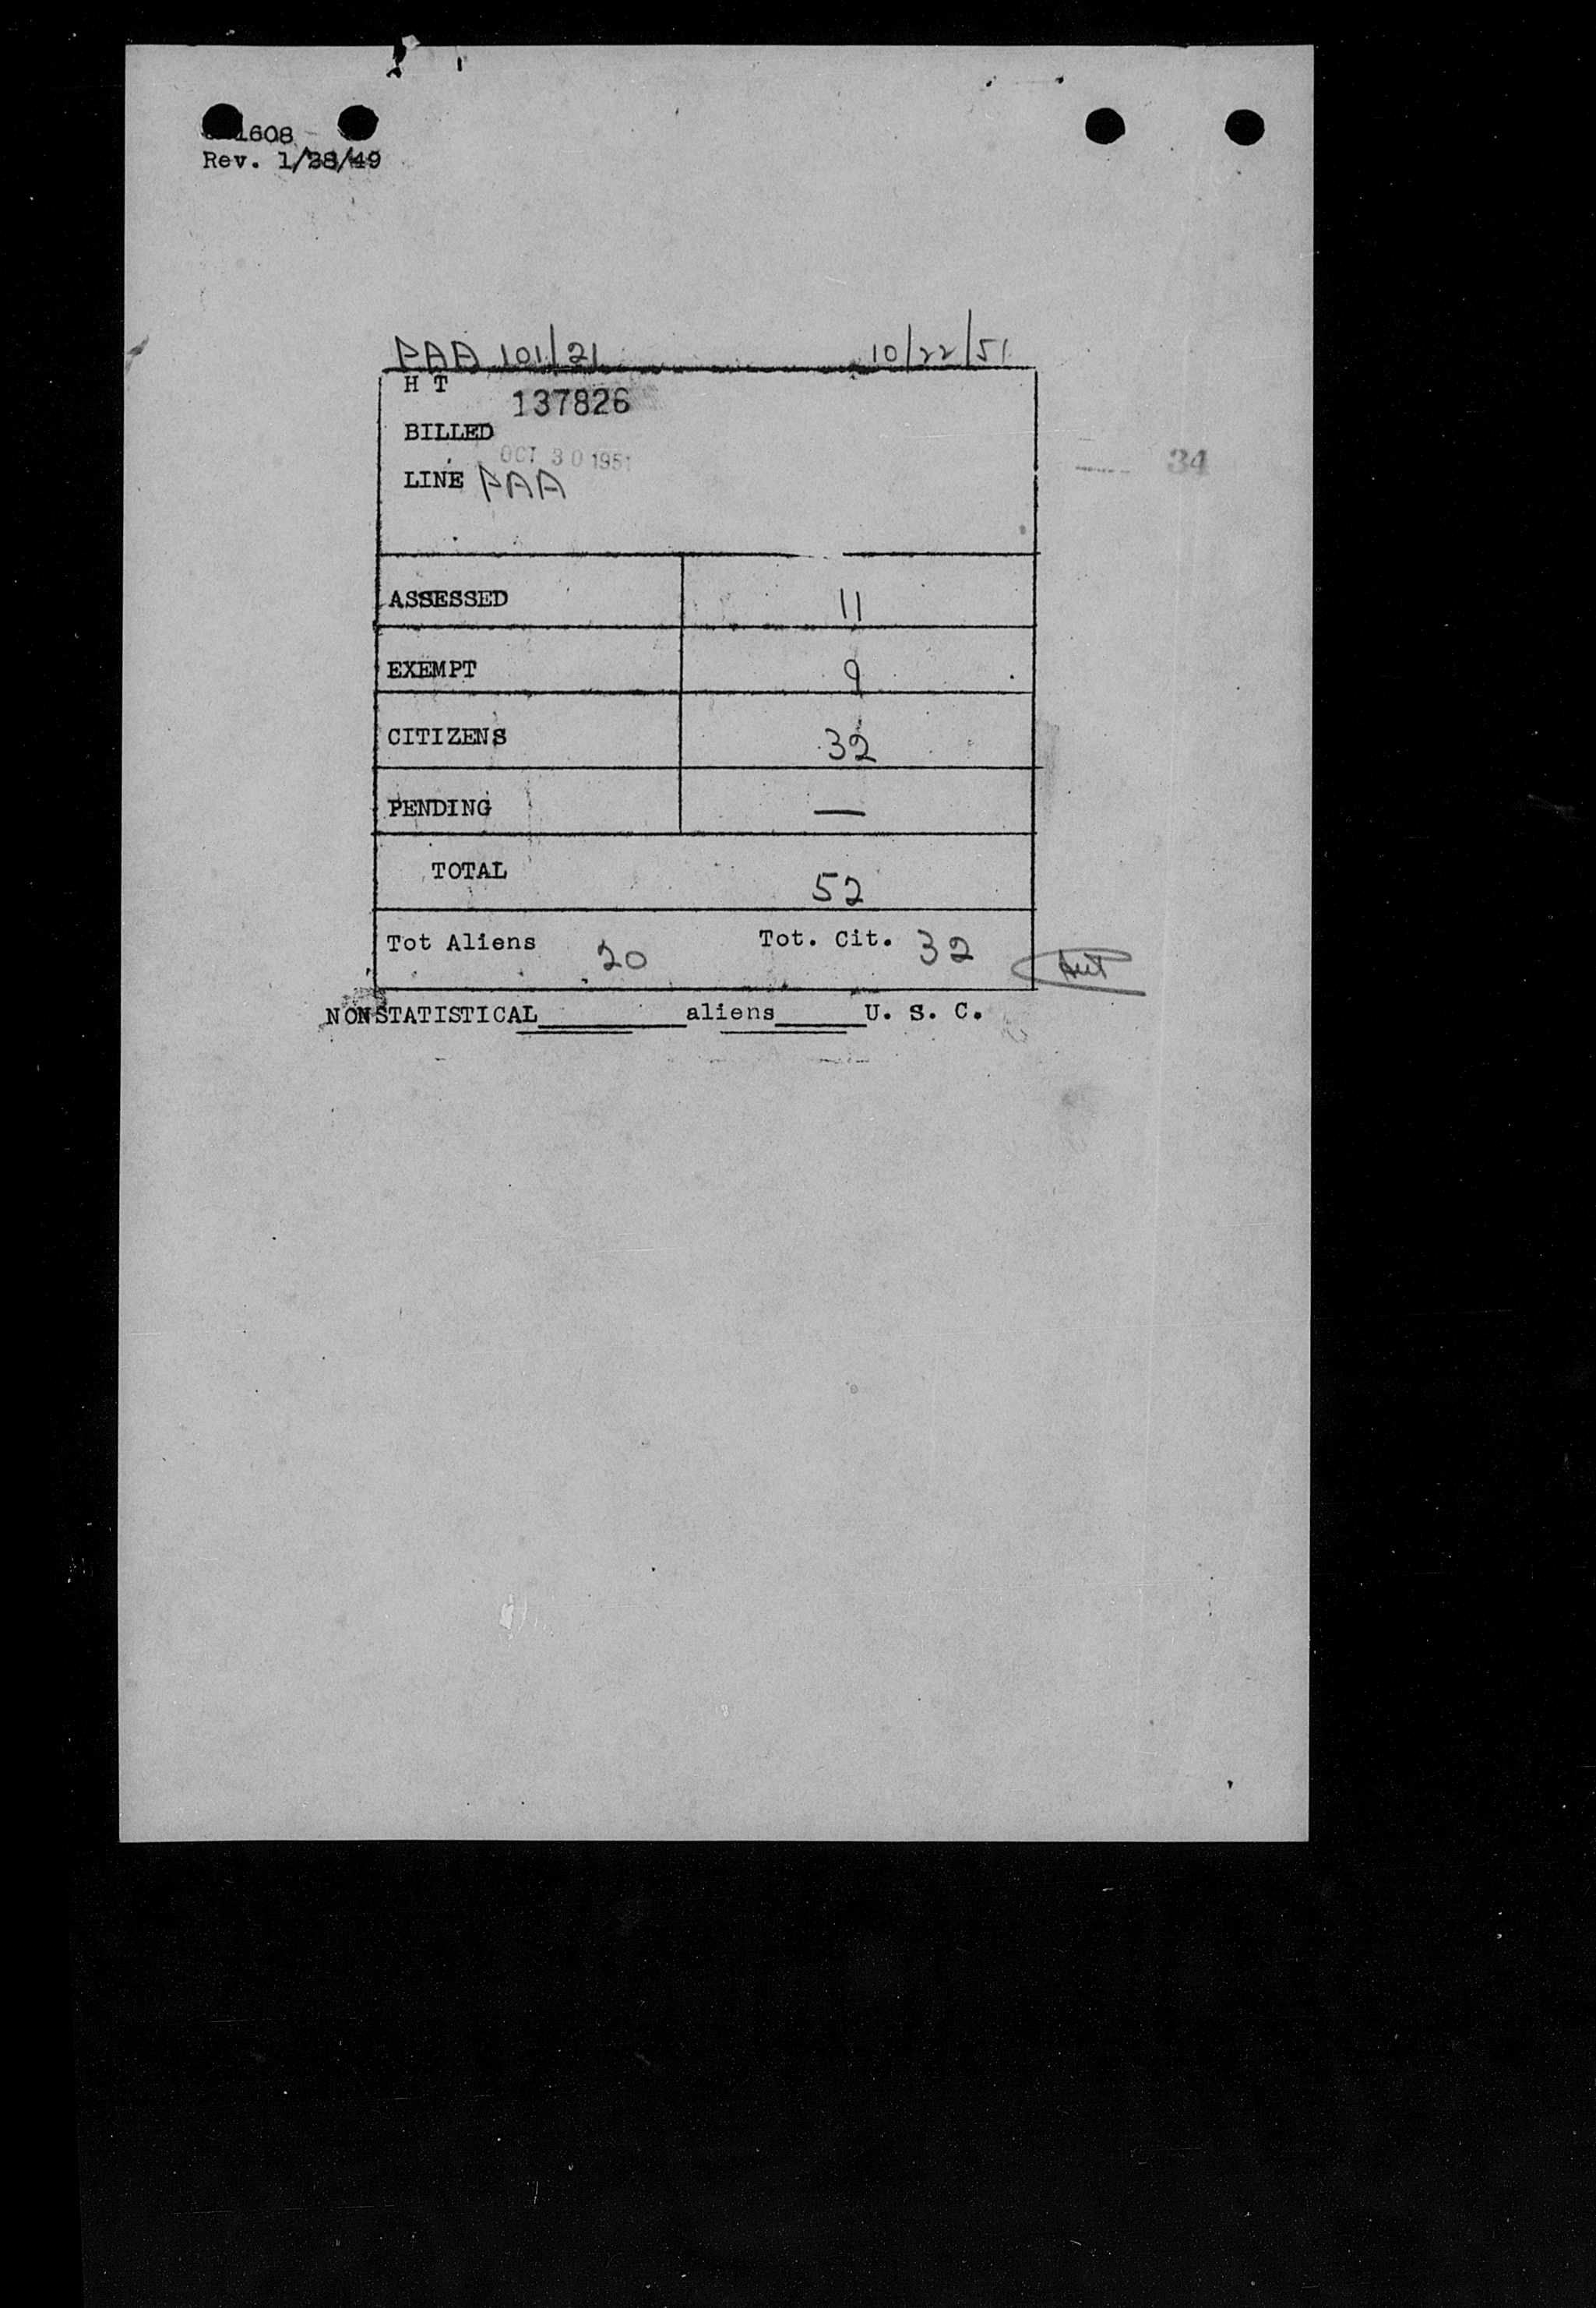 1608
Rev. 1/28/49
PAA 101/21 10/22/51
H T 137826
BILLED OCT 30 1951
LINE PAA
34
ASSESSED 11
EXEMPT 9
CITIZENS 32
PENDING —
TOTAL 52
Tot Aliens 20 Tot. Cit. 32
NONSTATISTICAL________aliens_____U. S. C.